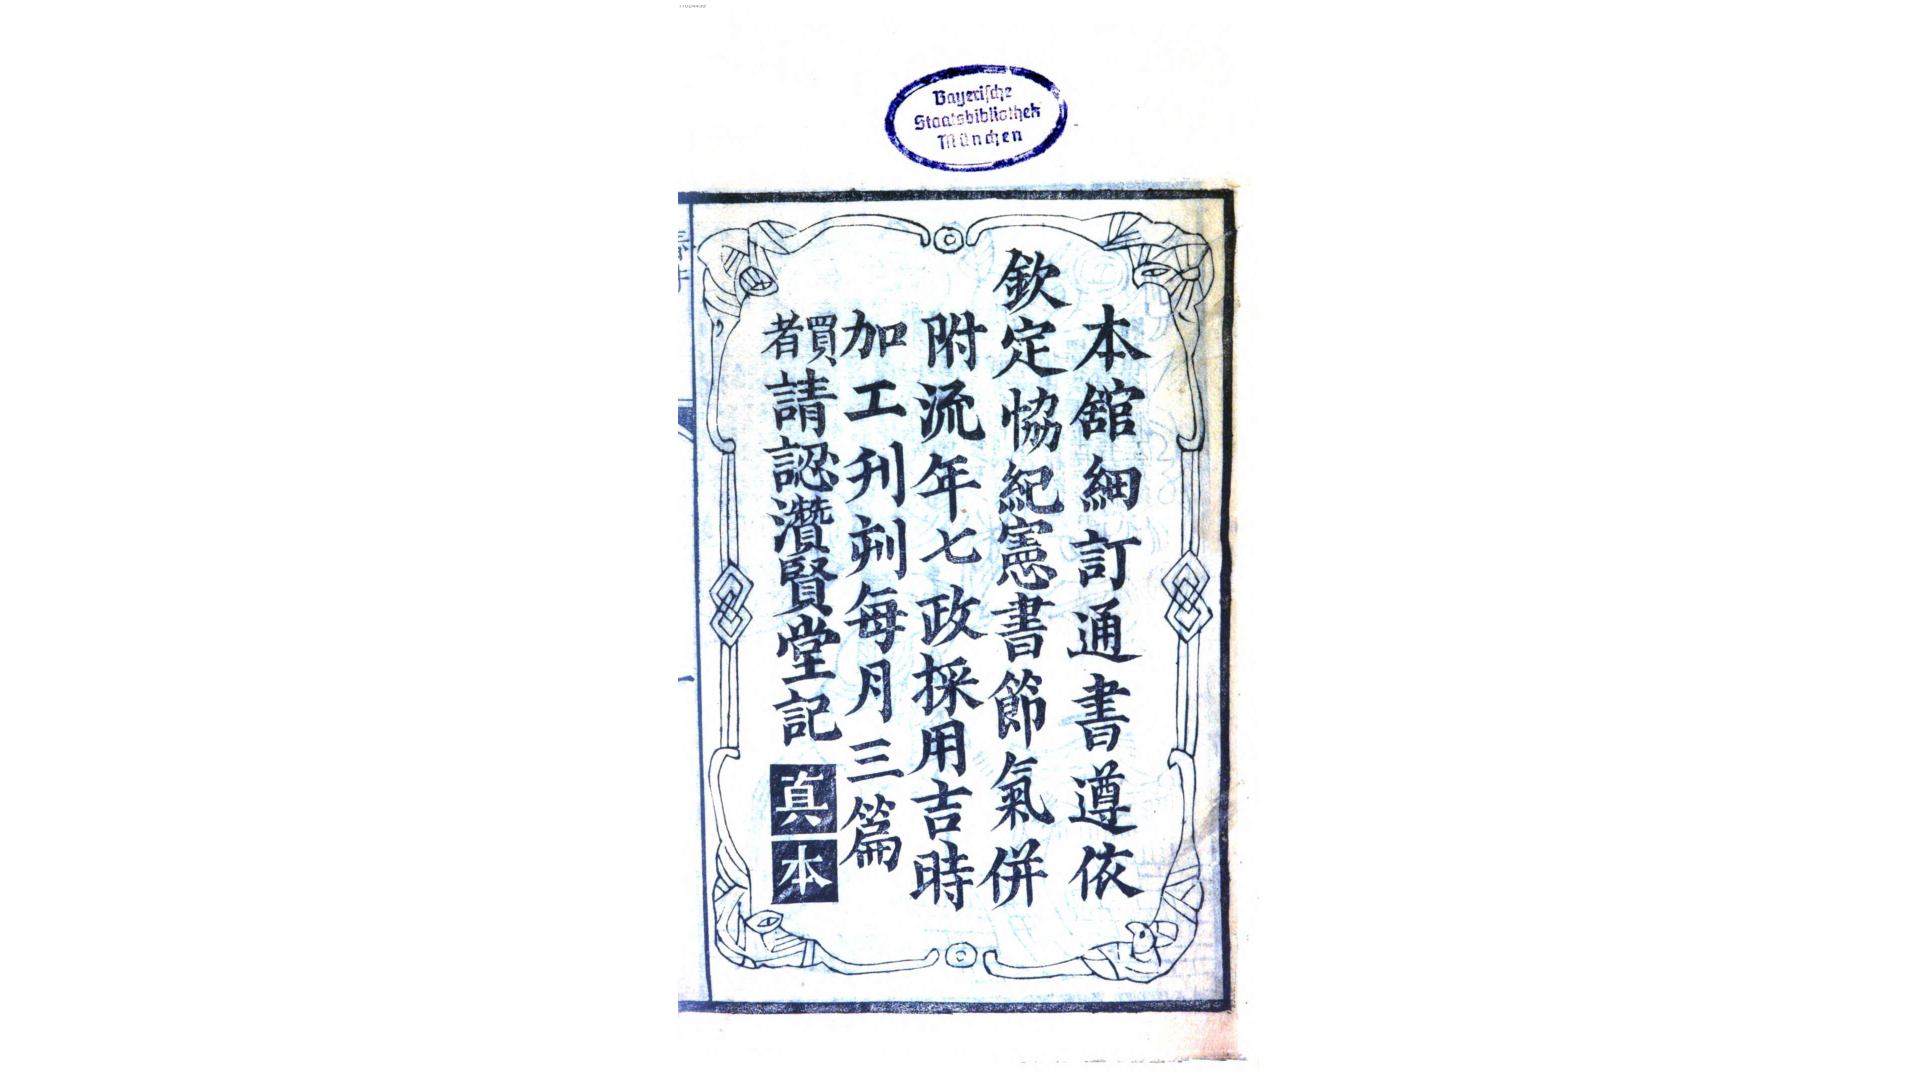 Bayerische
Staatsbibliothek
München
本舘細訂通書遵依
欽定恊紀憲書節氣併
附流年七政採用吉時
加工刋刱每月三篇
買者請認灒賢堂記真本